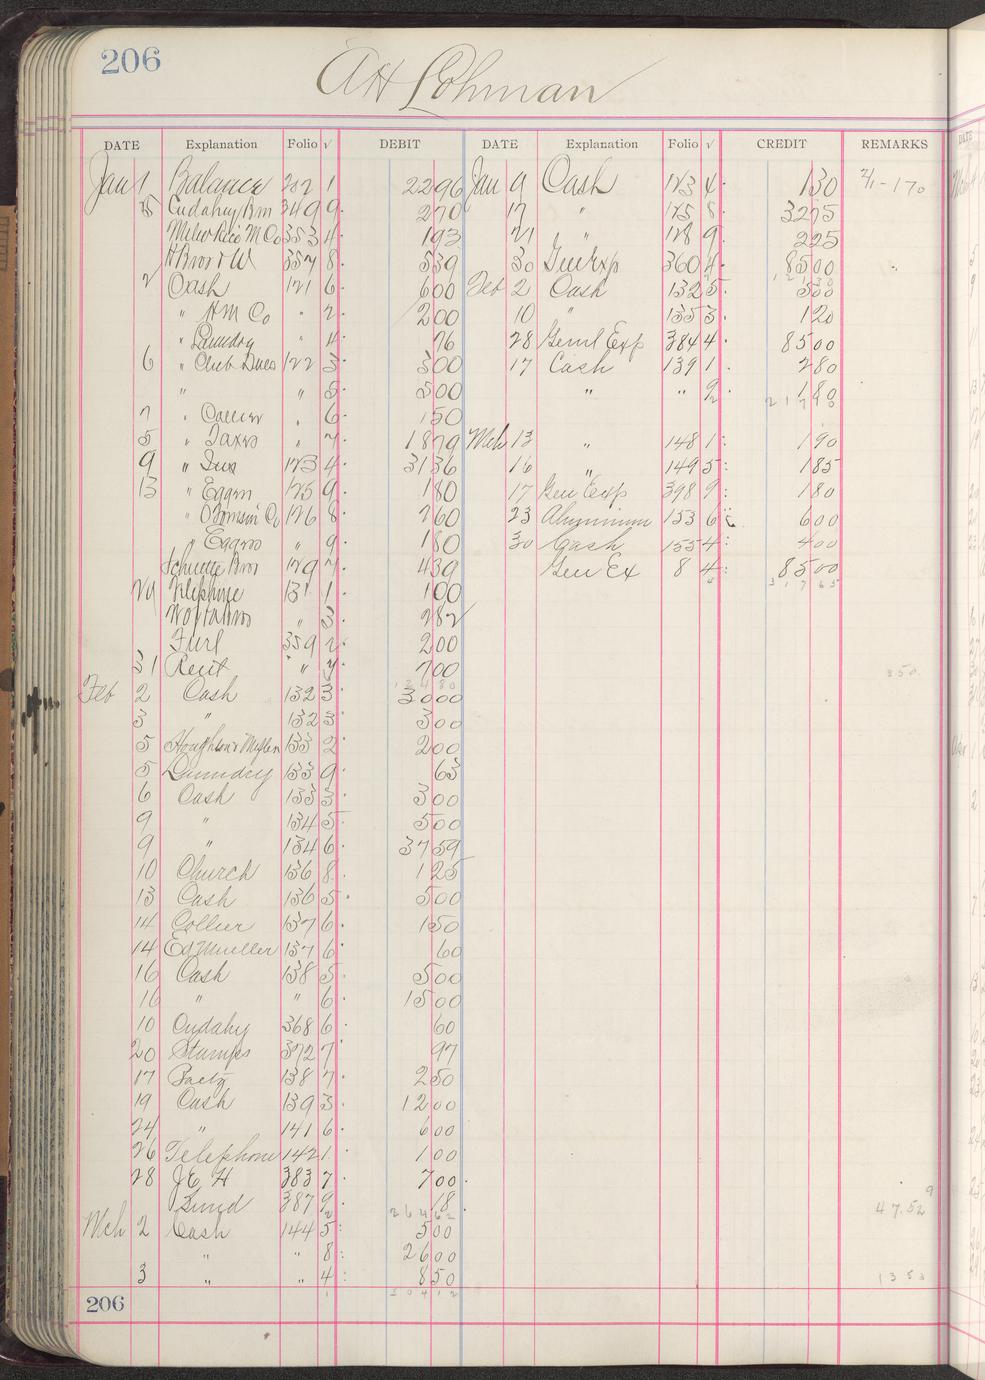 206
AH Lohman
DATE Explanation Folio √ DEBIT DATE Explanation Folio √ CREDIT REMARKS
Jan 1 Balance 202 1 2296 Jan 9 Cash 123 4 130 2/1-170
Cudahy Bros 349 9 270 17 " 125 8 3275
353 4 193 21 " 128 9 225
357 8 539 30 Gen Exp 360 4 8500
2 Cash 121 6 600 Feb 2 Cash 132 5 500
" H M Co " 2 200 10 " 135 3 120
" Laundry " 4 76 28 Genl Exp 384 4 8500
6 " Club Dues 122 3 300 17 Cash 139 1 280
" " 5 500 " " 9 180
7 " Collier " 6 150 21790
5 " Taxes " 7 1879 Mch 13 " 148 1 190
9 " Ins 123 4 3136 16 " 149 5 185
13 " Eggers 125 9 180 17 Gen Exp 398 9 180
" 126 8 260 23 Aluminum 153 6 600
" Eggers " 9 180 30 Cash 155 4 400
Schuette Bros 129 7 439 Gen Ex 8 4 8500
29 Telephone 131 1 100 31765
" 3 282
359 2 200
31 Rent " " 7 700 350
Feb 2 Cash 132 3 3000
3 " 132 3 300
5 133 2 200
5 Laundry 133 9 63
6 Cash 133 3 300
9 " 134 5 500
9 " 134 6 3759
10 Church 136 8 125
13 Cash 136 5 500
14 Collier 137 6 150
14 Ed Mueller 137 6 60
16 Cash 138 5 500
16 " " 6 1500
10 Cudahy 368 6 60
20 Stamps 372 7 97
17 138 7 250
19 Cash 139 3 1200
24 " 141 6 600
26 Telephone 142 1 100
28 J E H 383 7 700
387 9 18 47.52
26462
Mch 2 Cash 144 5 500
" " 8 2600
3 " " 4 850 1353
30412
206